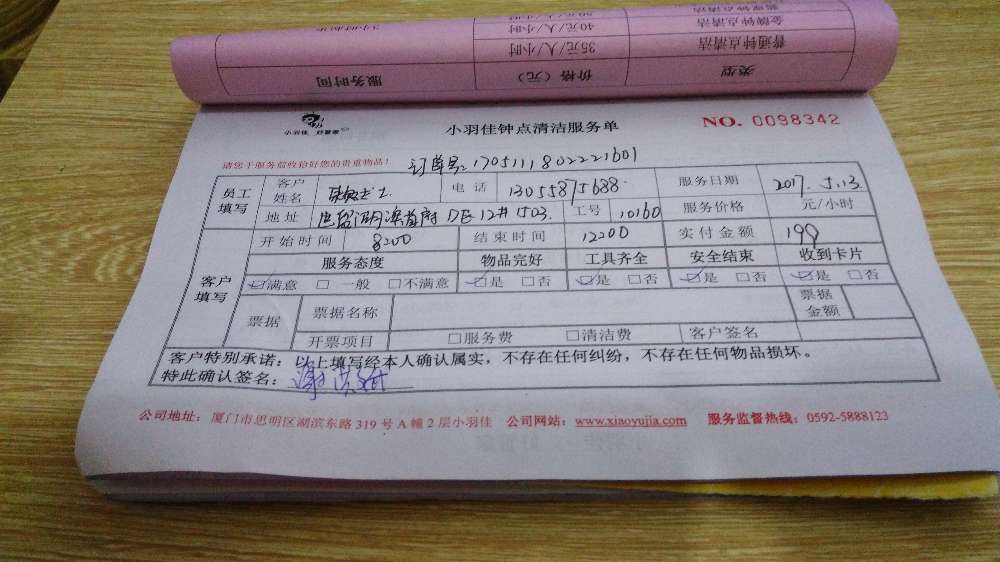 服务时间 价格（元） 类型
35元/人/小时 普通钟点清洁
40元/人/小时 金牌钟点清洁
小羽佳 好管家
小羽佳钟点清洁服务单
NO. 0098342
请您于服务前收拾好您的贵重物品！
订单号：1705111802221601
员工填写 客户姓名 电话 13055875688 服务日期 2017.5.13
地址 DE 12# 1503. 工号 10160 服务价格 元/小时
开始时间 8200 结束时间 12200 实付金额 199
服务态度 物品完好 工具齐全 安全结束 收到卡片
客户填写 ☑满意 □一般 □不满意 ☑是 □否 ☑是 □否 ☑是 □否 ☑是 □否
票据 票据名称 票据金额
开票项目 □服务费 □清洁费 客户签名
客户特别承诺：以上填写经本人确认属实，不存在任何纠纷，不存在任何物品损坏。
特此确认签名：
公司地址：厦门市思明区湖滨东路 319 号 A 幢 2 层小羽佳 公司网站：www.xiaoyujia.com 服务监督热线：0592-5888123